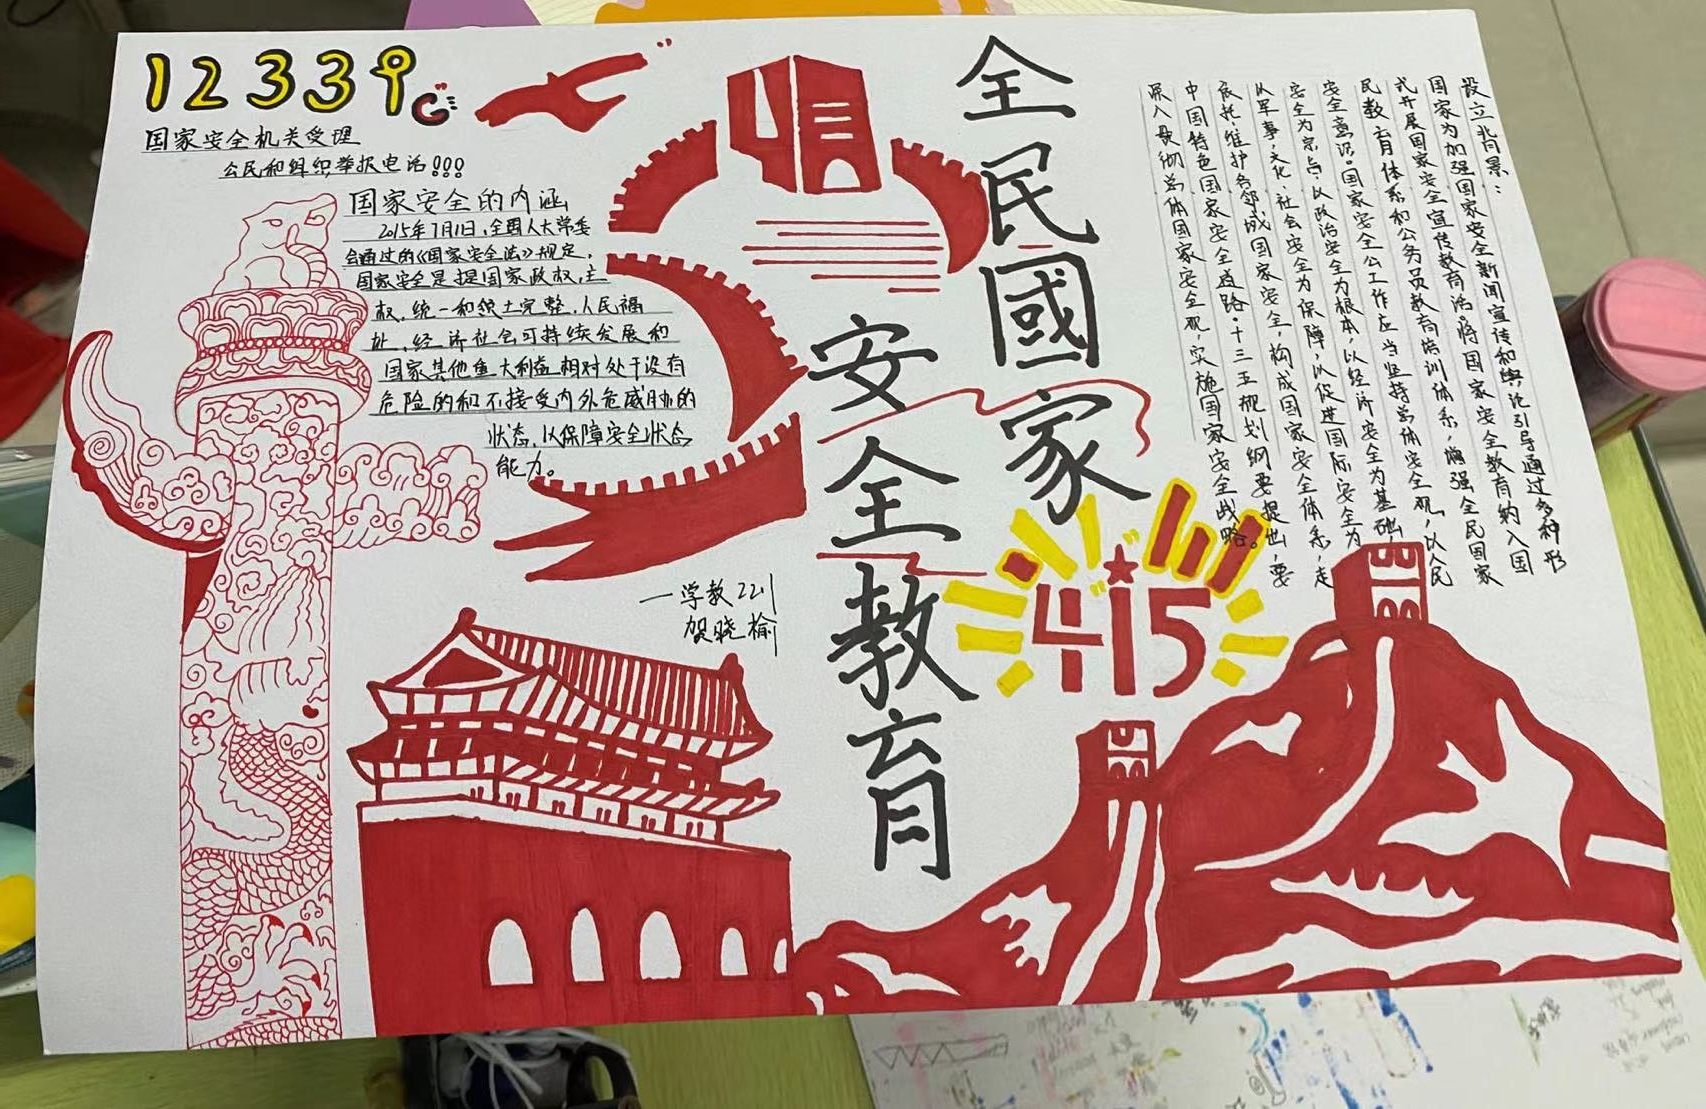 12339
国家安全机关受理
公民和组织举报电话!!!
国家安全的内涵
2015年7月1日,全国人大常委
会通过的《国家安全法》规定,
国家安全是指国家政权,主
权、统一和领土完整,人民福
祉、经济社会可持续发展和
国家其他重大利益相对处于没有
危险的和不接受内外危威胁的
状态,以保障安全状态
能力。
一学教221
贺晓榆
全民國家
安全教育
415
设立背景:
国家为加强国家安全新闻宣传和舆论引导通过多种形
式开展国家安全宣传教育活,将国家安全教育纳入国
民教育体系和公务员教育培训体系,增强全民国家
安全意识。国家安全公工作应当坚持总体安全观,以人民
安全为宗旨,以政治安全为根本,以经济安全为基础,
以军事,文化,社会安全为保障,以促进国际安全为
依托,维护各领域国家安全,构成国家安全体系,走
中国特色国家安全道路。十三五规划纲要提出,要
深入贯彻总体国家安全观,实施国家安全战略。